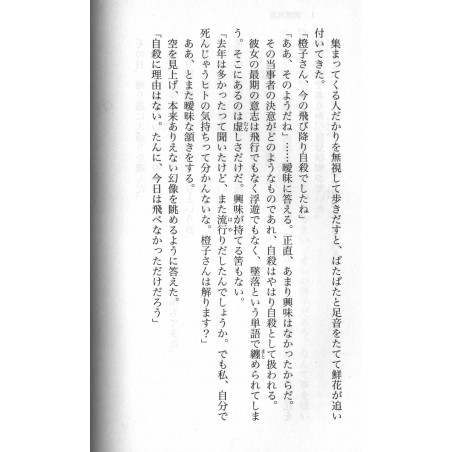 集まってくる人だかりを無視して歩きだすと、ぱたぱたと足音をたてて鮮花が追い
付いてきた。
「橙子さん、今の飛び降り自殺でしたね」
「ああ、そのようだね」……曖昧に答える。正直、あまり興味はなかったからだ。
その当事者の決意がどのようなものであれ、自殺はやはり自殺として扱われる。
彼女の最期の意志は飛行でもなく浮遊でもなく、墜落という単語で纏められてしま
う。そこにあるのは虚しさだけだ。興味が持てる筈もない。
「去年は多かったって聞いたけど、また流行りだしたんでしょうか。でも私、自分で
死んじゃうヒトの気持ちって分かんないな。橙子さんは解ります?」
ああ、とまた曖昧な頷きをする。
空を見上げ、本来ありえない幻像を眺めるように答えた。
「自殺に理由はない。たんに、今日は飛べなかっただけだろう」